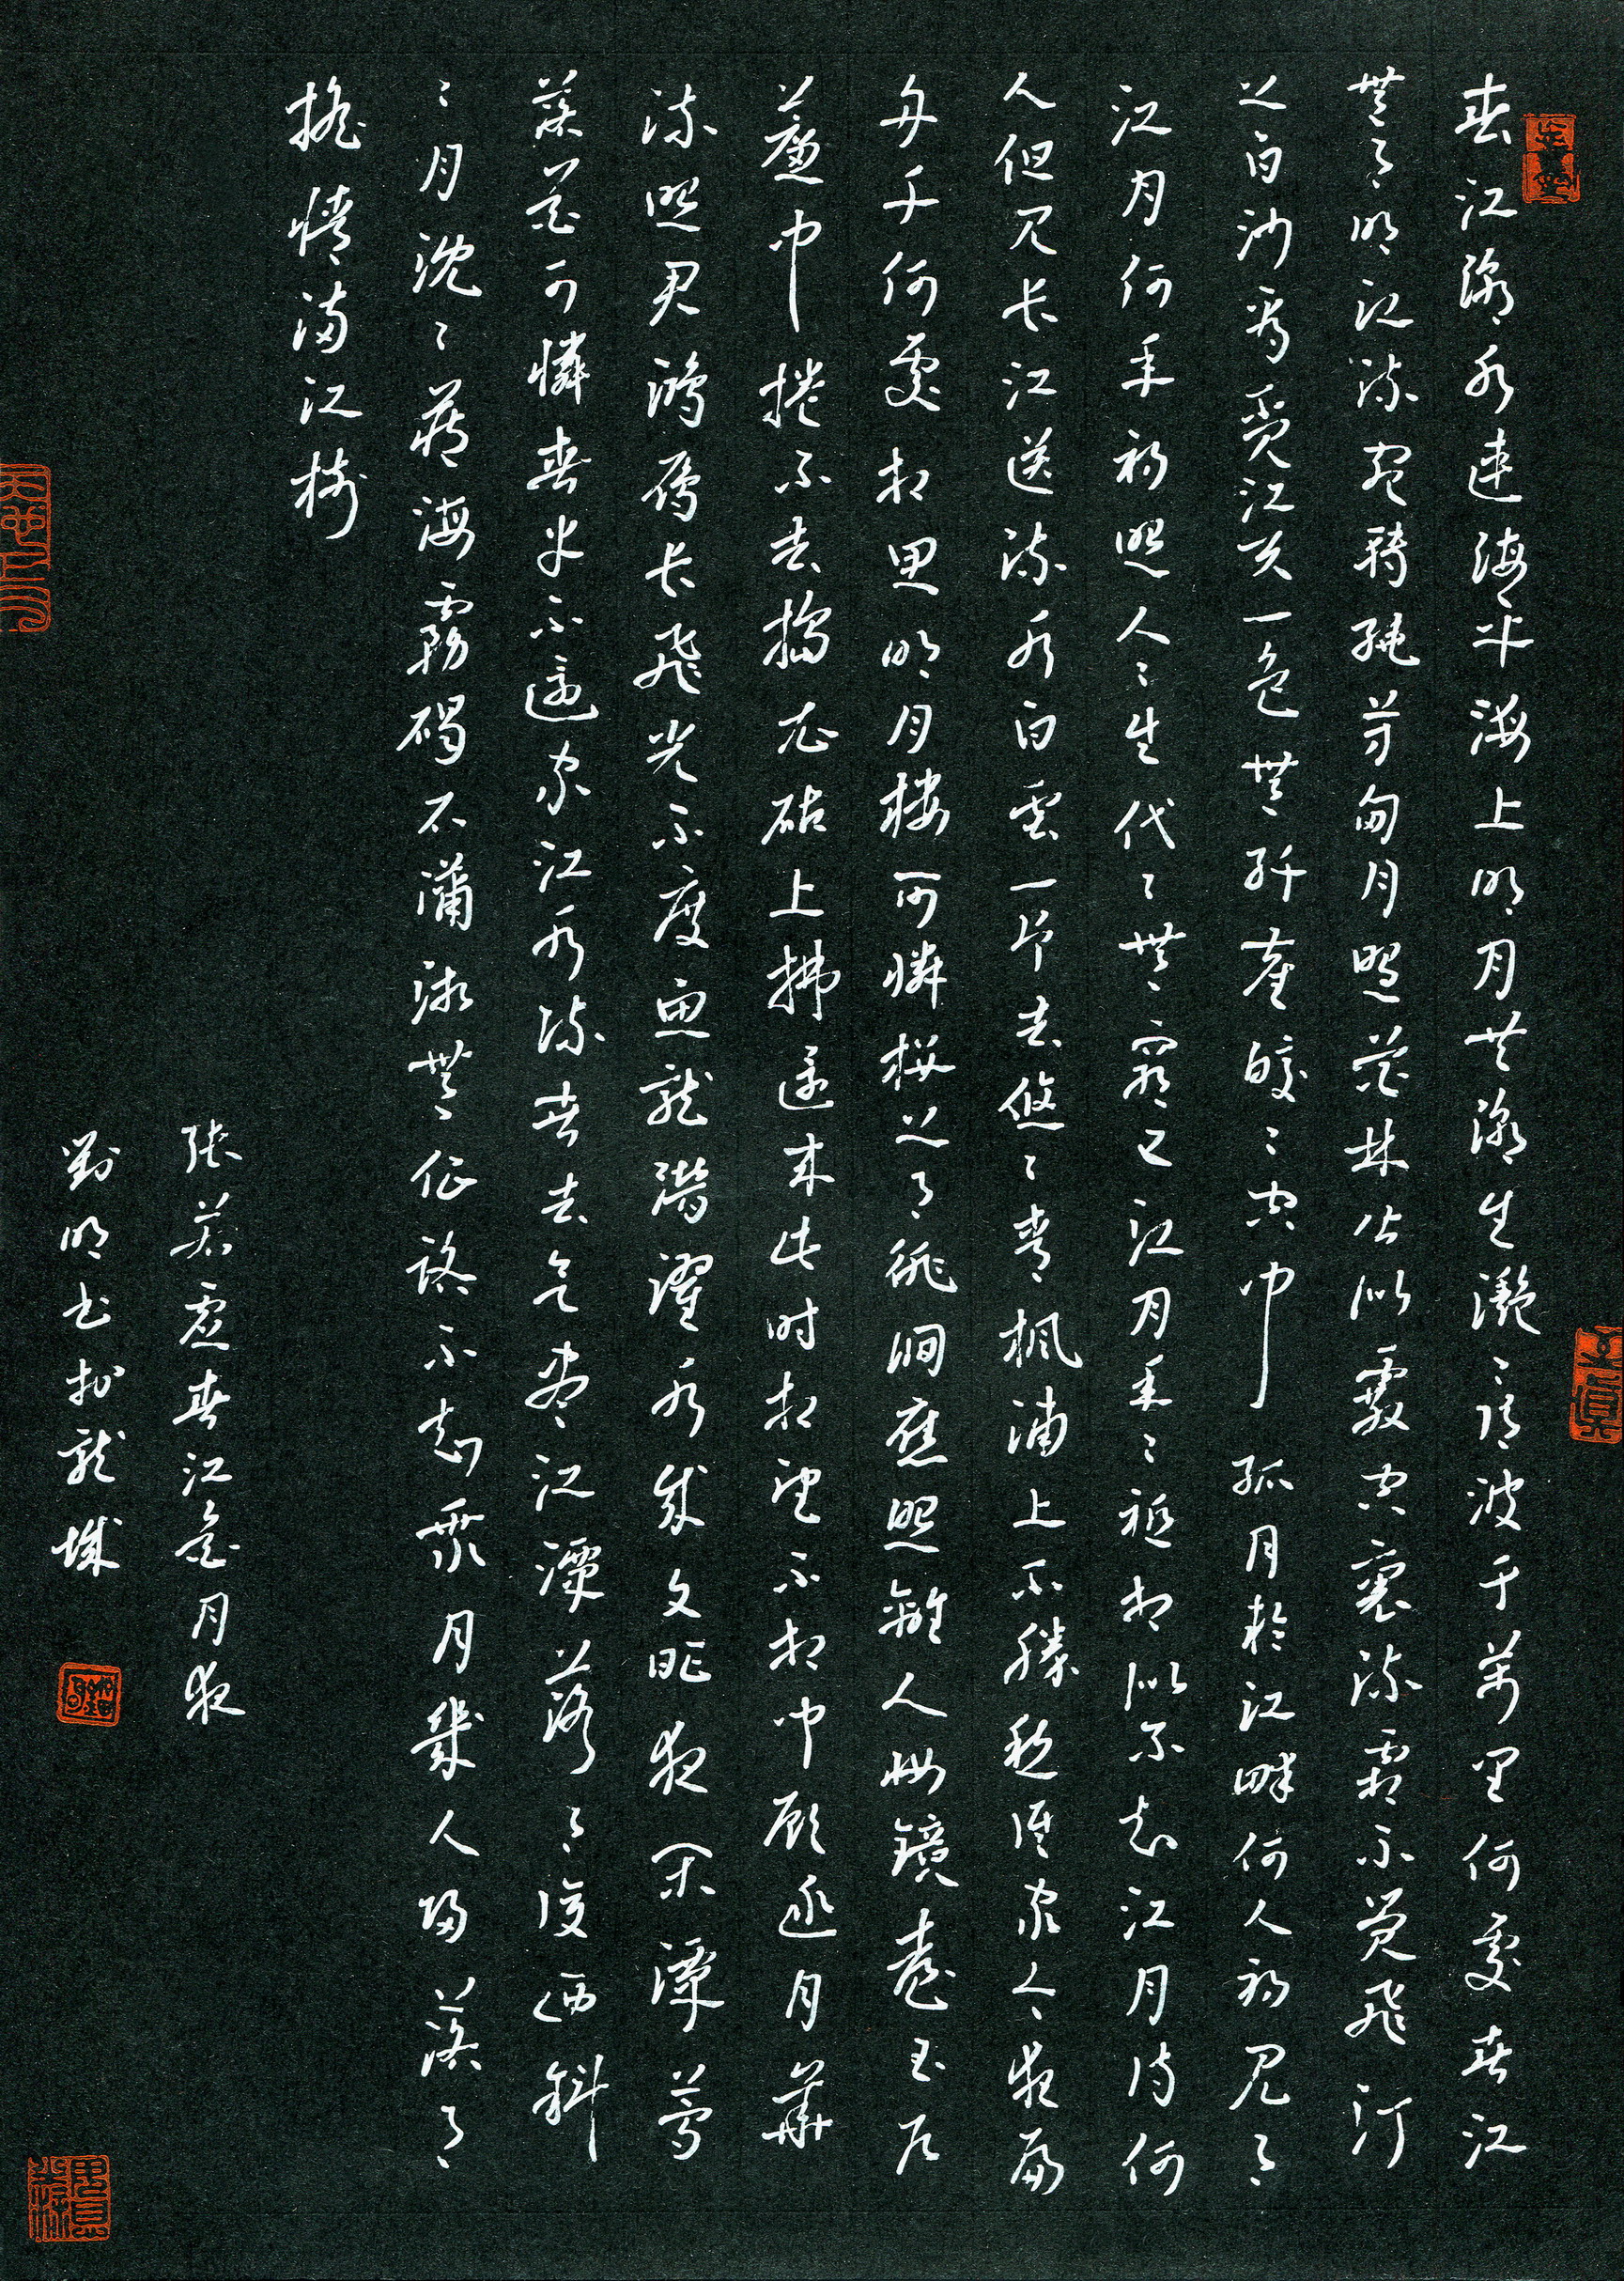 春江潮水連海平海上明月共潮生灩〻隨波千萬里何處春江
無月明江流宛轉繞芳甸月照花林皆似霰空裏流霜不覺飛汀
上白沙看不見江天一色無纖塵皎〻空中孤月於江畔何人初見月
江月何年初照人〻生代〻無窮已江月年〻祗相似不知江月待何
人但見長江送流水白雲一片去悠〻青楓浦上不勝愁誰家今夜扁
舟子何處相思明月樓可憐樓上月徘徊應照離人妝鏡臺玉戶
簾中捲不去擣衣砧上拂還來此時相望不相聞願逐月華
流照君鴻雁長飛光不度魚龍潛躍水成文昨夜閒潭夢
落花可憐春半不還家江水流春去欲盡江潭落月復西斜
〻月沈〻藏海霧碣石瀟湘無限路不知乘月幾人歸落月
搖情滿江樹
張若虛春江花月夜
劉明书於龍城